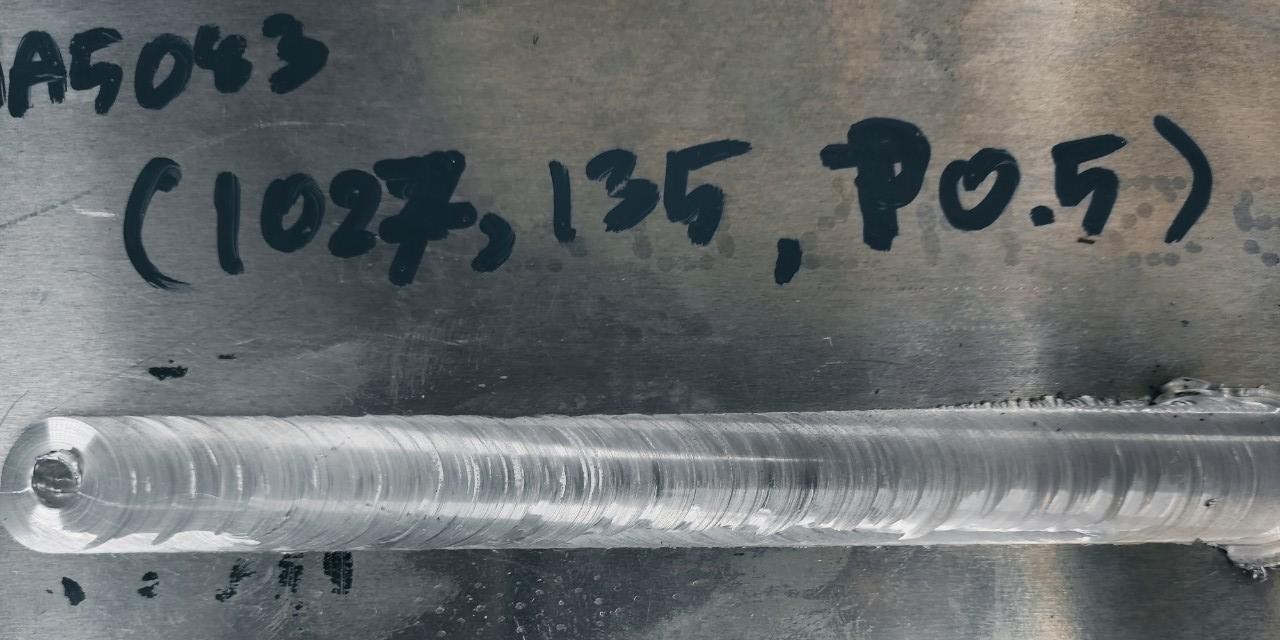 AA5083
(1027, 135, P0.5)